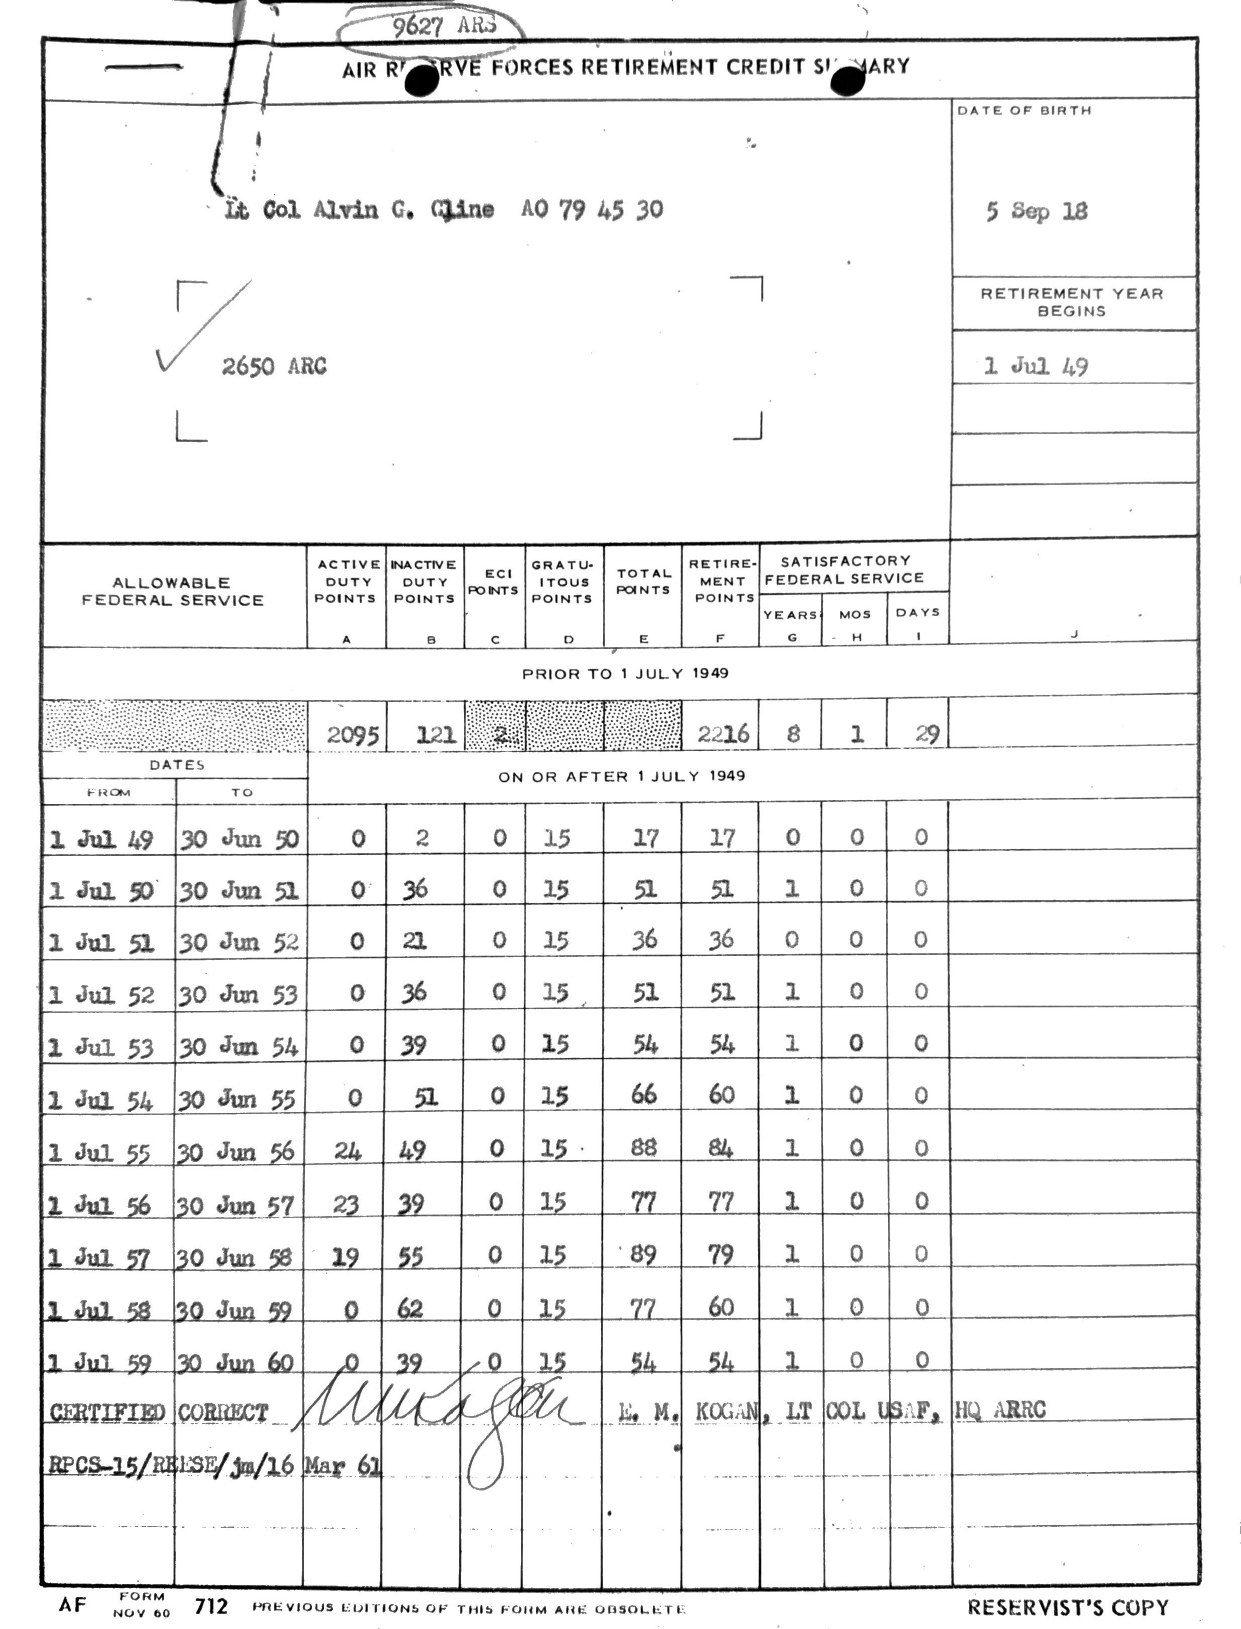 9627 ARS
AIR RESERVE FORCES RETIREMENT CREDIT SUMMARY
DATE OF BIRTH
Lt Col Alvin G. Cline AO 79 45 30
5 Sep 18
RETIREMENT YEAR
BEGINS
2650 ARC
1 Jul 49
ALLOWABLE
FEDERAL SERVICE
ACTIVE
DUTY
POINTS
A
INACTIVE
DUTY
POINTS
B
ECI
POINTS
C
GRATU-
ITOUS
POINTS
D
TOTAL
POINTS
E
RETIRE-
MENT
POINTS
F
SATISFACTORY
FEDERAL SERVICE
YEARS
G
MOS
H
DAYS
I
J
PRIOR TO 1 JULY 1949
2095 121 2 2216 8 1 29
DATES
FROM TO
ON OR AFTER 1 JULY 1949
1 Jul 49 30 Jun 50 0 2 0 15 17 17 0 0 0
1 Jul 50 30 Jun 51 0 36 0 15 51 51 1 0 0
1 Jul 51 30 Jun 52 0 21 0 15 36 36 0 0 0
1 Jul 52 30 Jun 53 0 36 0 15 51 51 1 0 0
1 Jul 53 30 Jun 54 0 39 0 15 54 54 1 0 0
1 Jul 54 30 Jun 55 0 51 0 15 66 60 1 0 0
1 Jul 55 30 Jun 56 24 49 0 15 88 84 1 0 0
1 Jul 56 30 Jun 57 23 39 0 15 77 77 1 0 0
1 Jul 57 30 Jun 58 19 55 0 15 89 79 1 0 0
1 Jul 58 30 Jun 59 0 62 0 15 77 60 1 0 0
1 Jul 59 30 Jun 60 0 39 0 15 54 54 1 0 0
CERTIFIED CORRECT EMKogan E. M. KOGAN, LT COL USAF, HQ ARRC
RPCS-15/REESE/jm/16 Mar 61
AF FORM NOV 60 712 PREVIOUS EDITIONS OF THIS FORM ARE OBSOLETE
RESERVIST'S COPY